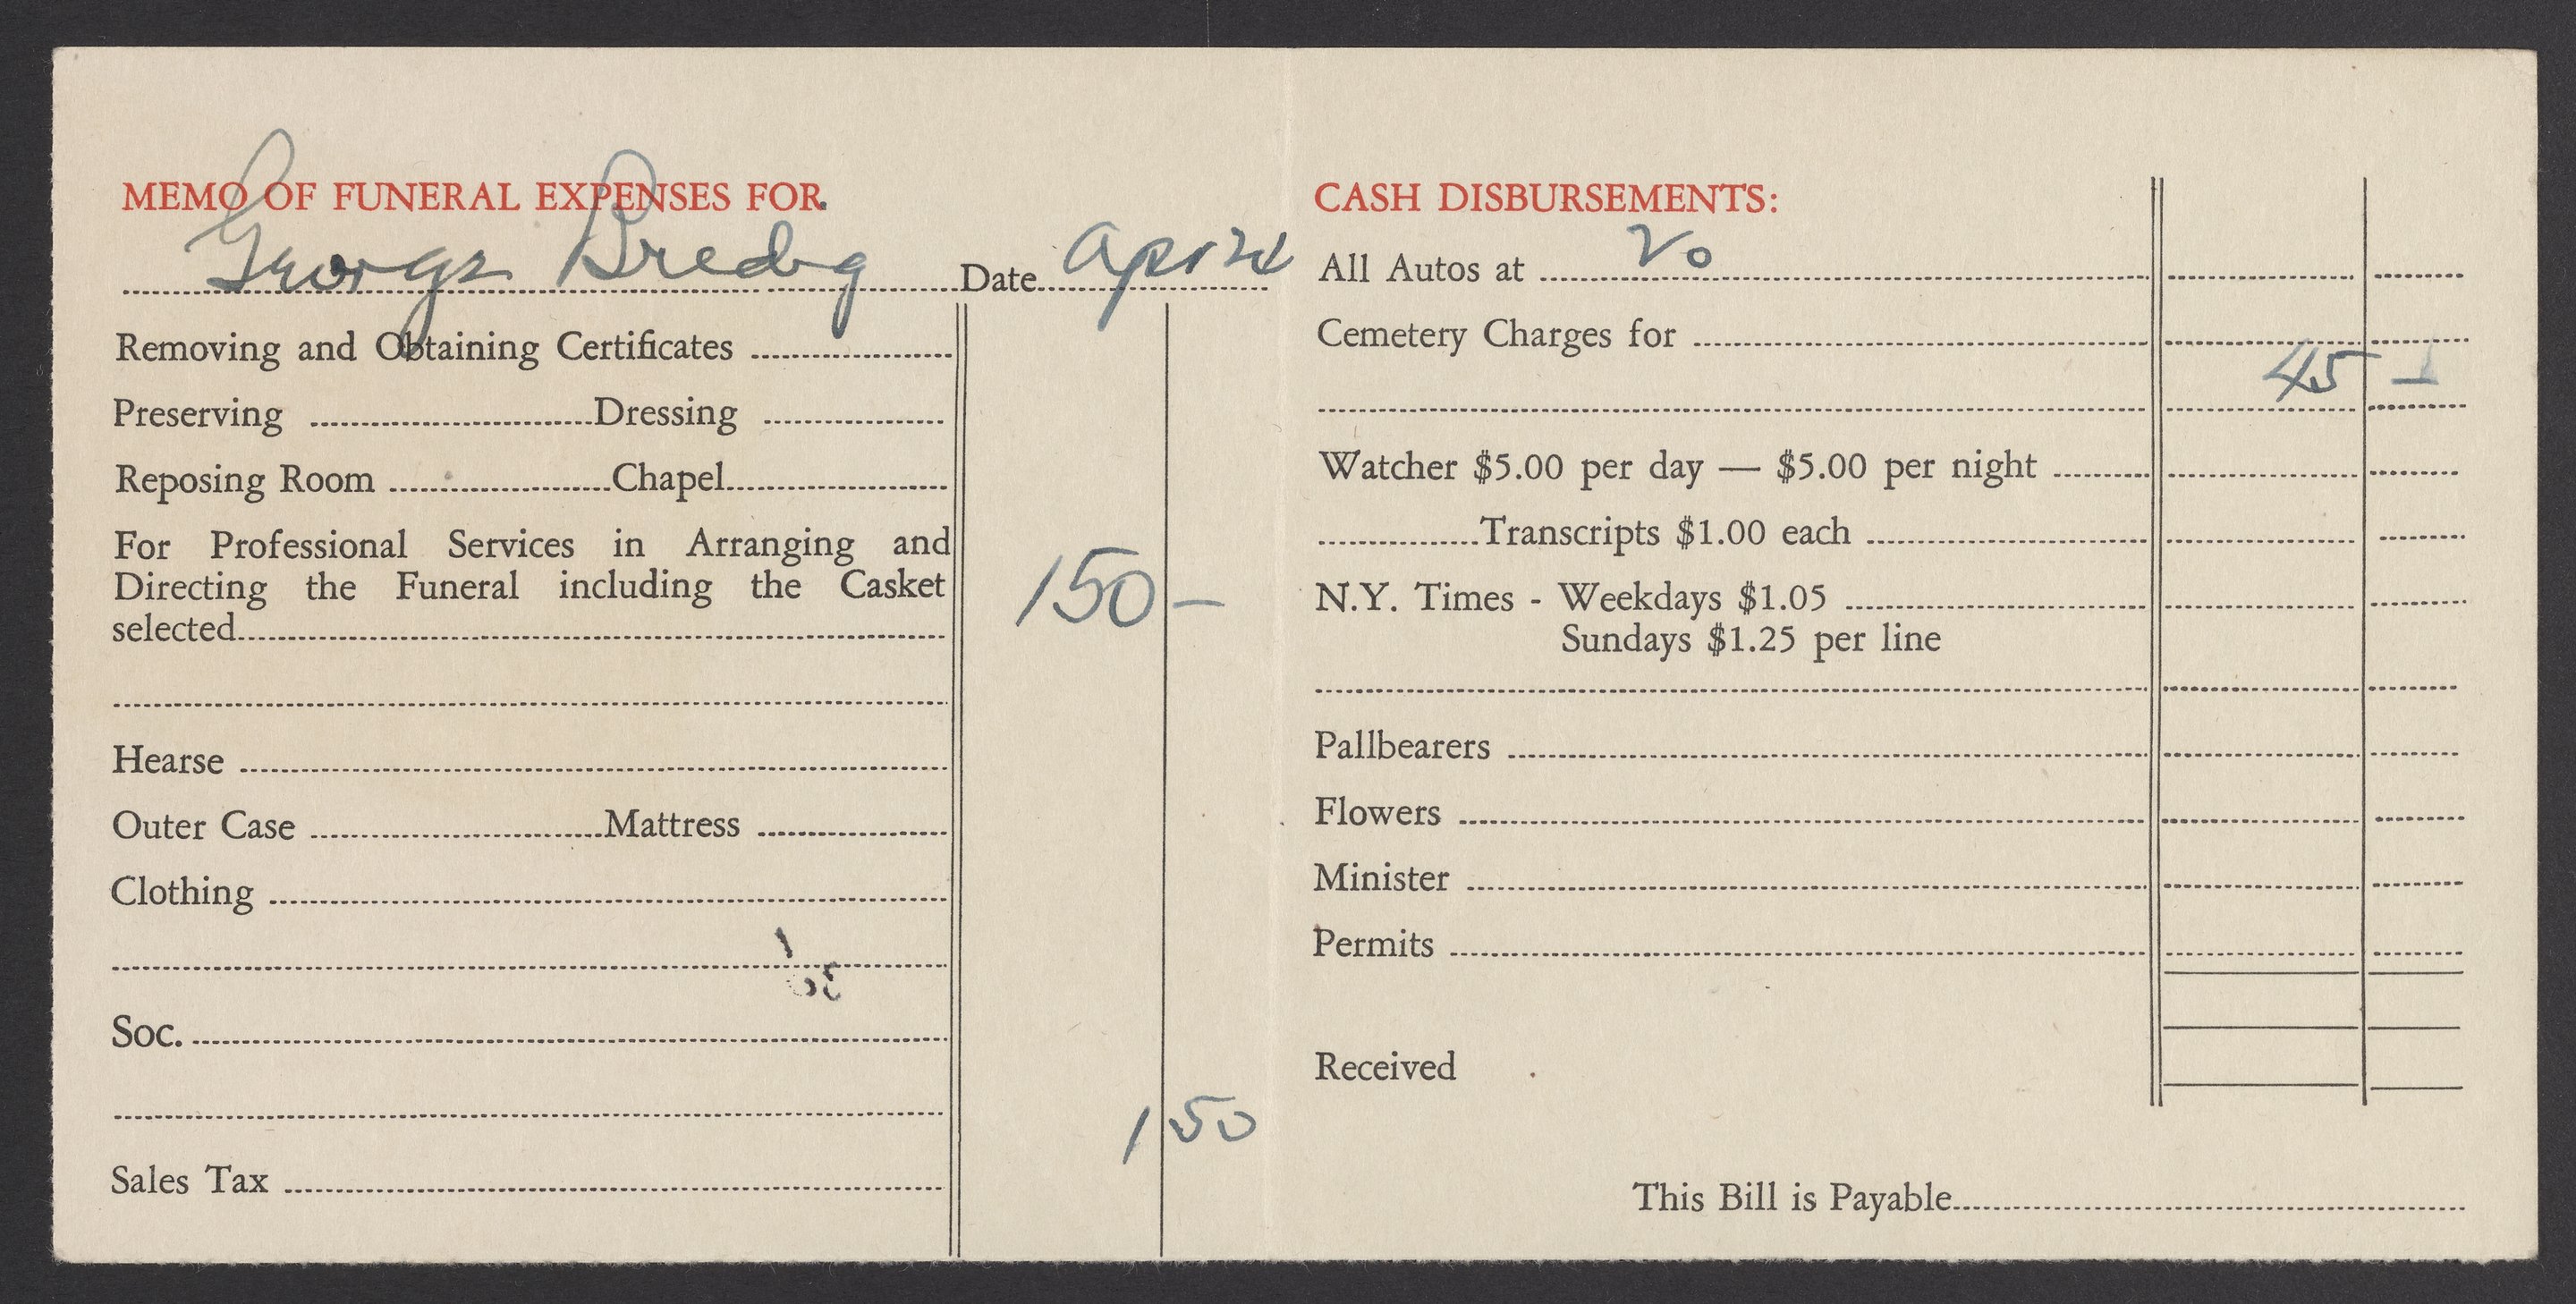 MEMO OF FUNERAL EXPENSES FOR
George Bredig Date April 24
Removing and Obtaining Certificates
Preserving Dressing
Reposing Room Chapel
For Professional Services in Arranging and
Directing the Funeral including the Casket
selected 150 –
Hearse
Outer Case Mattress
Clothing
Soc.
1 50
Sales Tax
CASH DISBURSEMENTS:
All Autos at 20
Cemetery Charges for
45 –
Watcher $5.00 per day — $5.00 per night
Transcripts $1.00 each
N.Y. Times - Weekdays $1.05
Sundays $1.25 per line
Pallbearers
Flowers
Minister
Permits
Received
This Bill is Payable